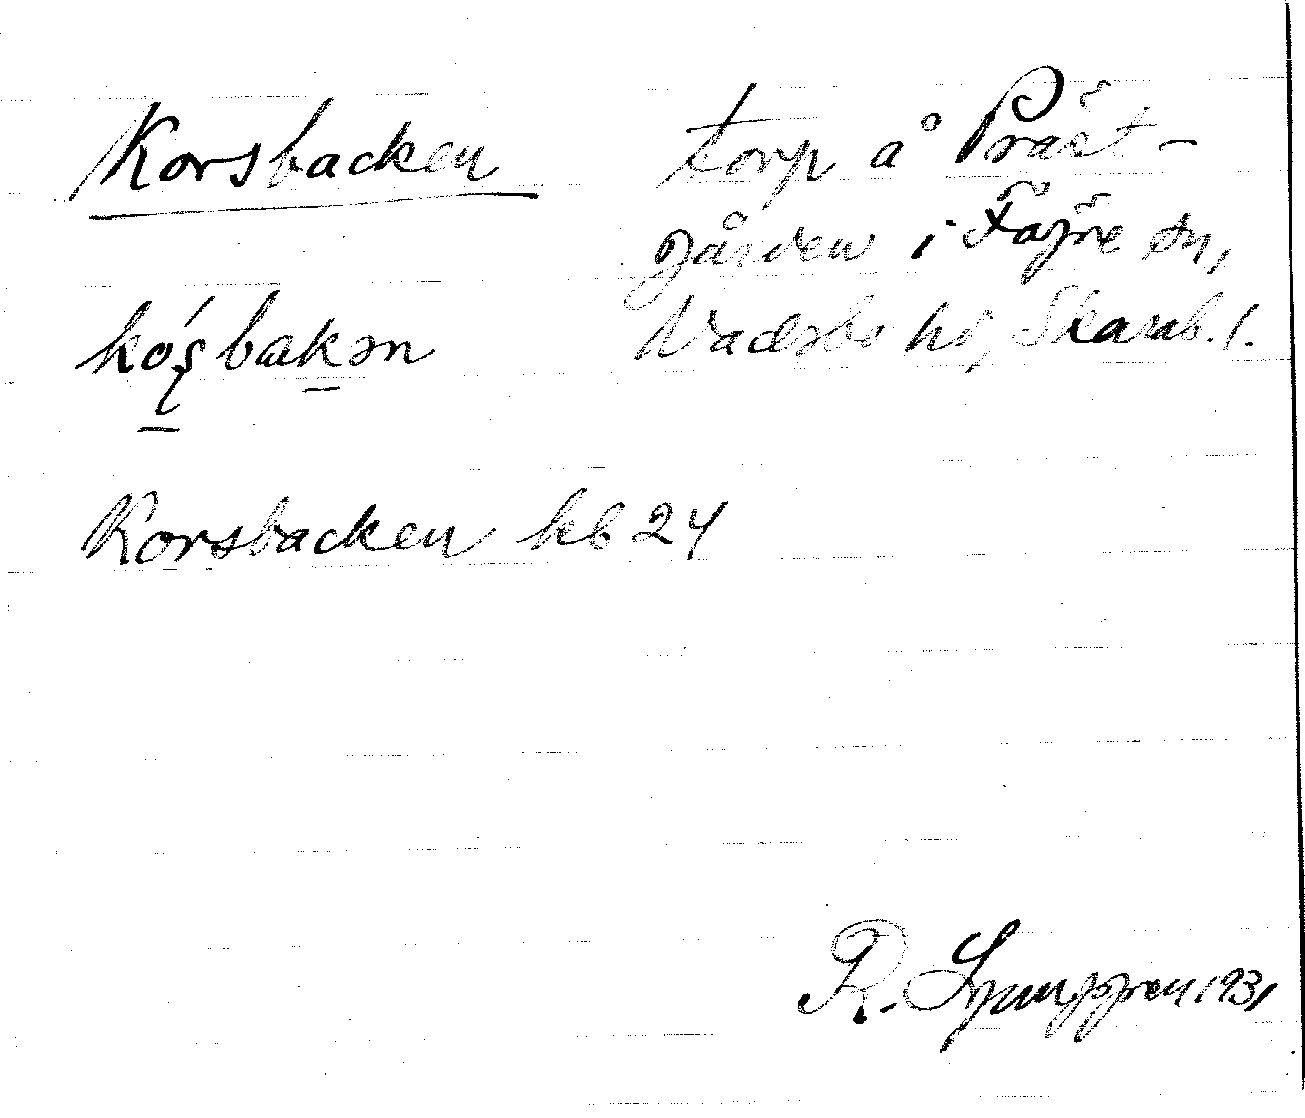 Korsbacken
torp å Präst-
gården i Fägre sn,
Vadsbo hd, Skarab. l.
kóʂbakən
Korsbacken kb 24
R. Ljunggren 1931